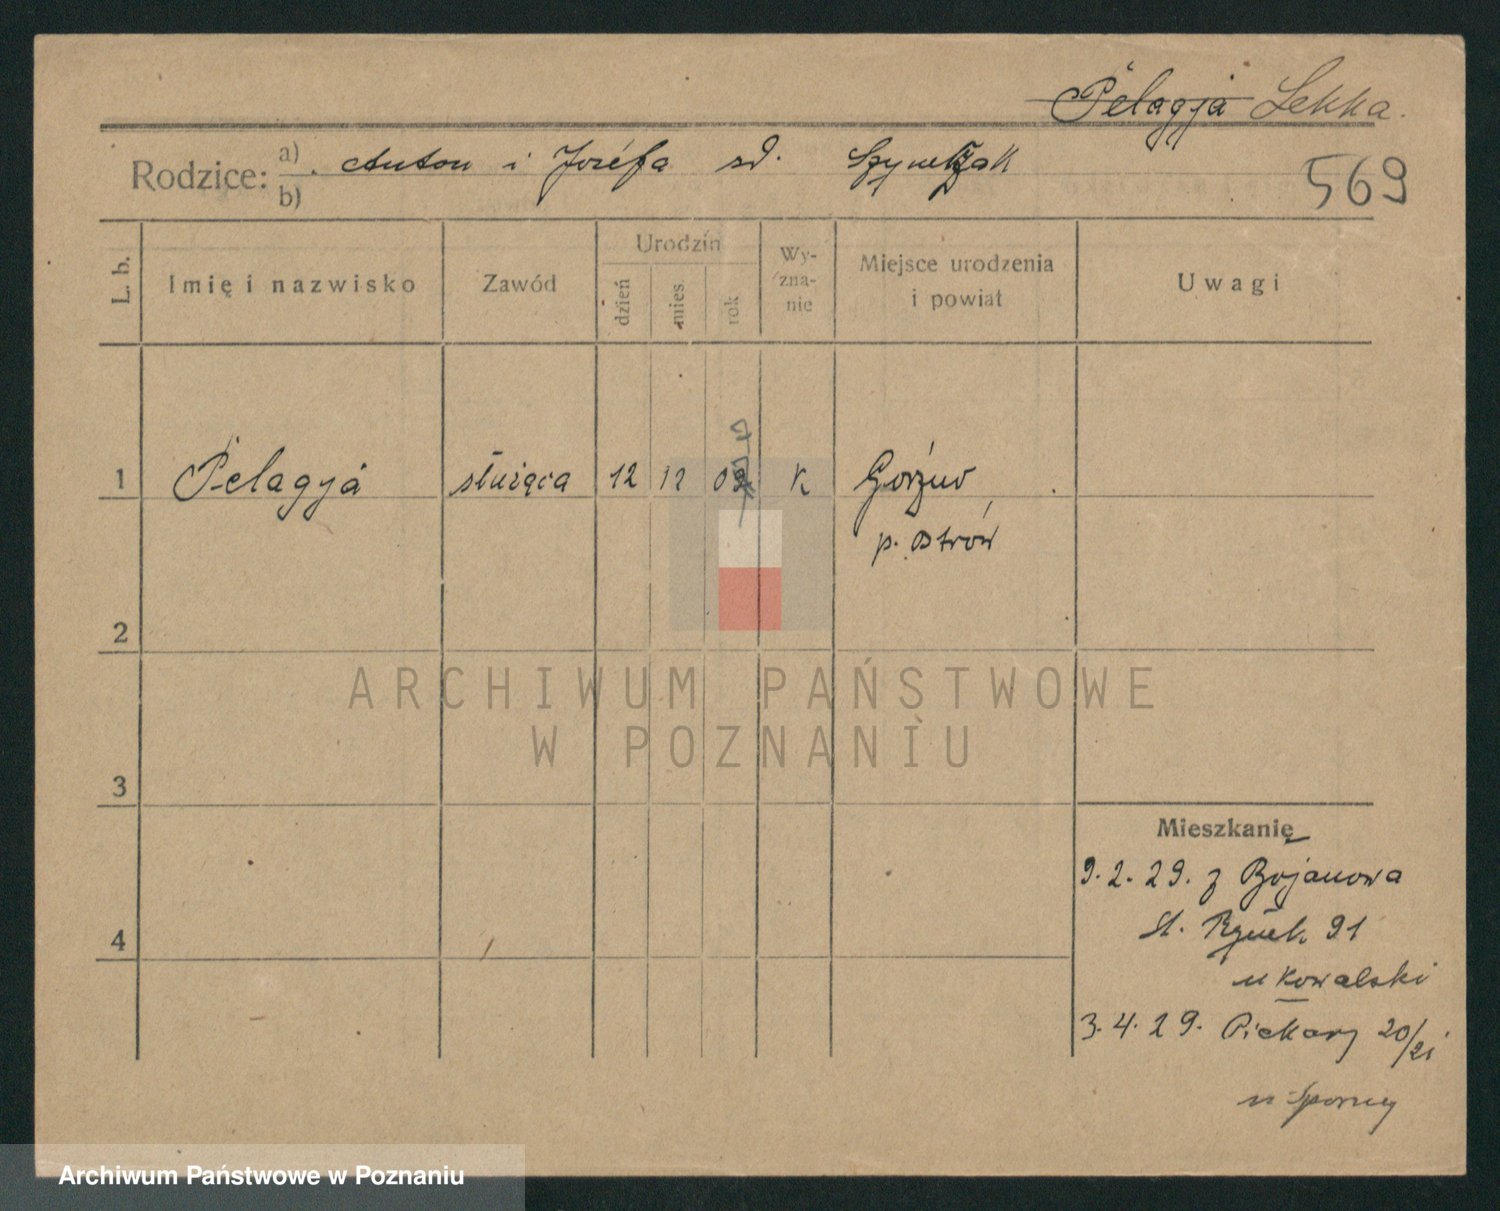 Pelagja Lekka.
Rodzice: a) Anton i Józefa sd. Szymczak
b)
569
L. b.
Imię i nazwisko
Zawód
Urodzin
dzień
mies.
rok
Wy-
zna-
nie
Miejsce urodzenia
i powiat
Uwagi
1 Pelagja służąca 12 12 K Gorzno
p. Ostrów
2
3
4
Mieszkanie
9. 2. 29. z Bojanowa
St. Rynek 91
u Kowalski
3. 4. 29. Piekary 20/21
u
ARCHIWUM PAŃSTWOWE
W POZNANIU
Archiwum Państwowe w Poznaniu